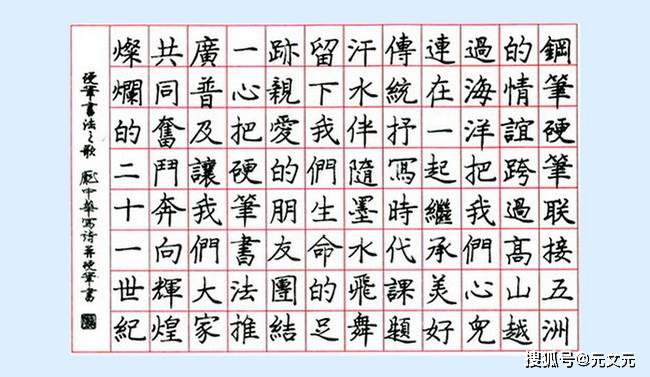 鋼筆硬筆聯接五洲
的情誼跨過高山越
過海洋把我們心兒
連在一起繼承美好
傳統抒寫時代課題
汗水伴隨墨水飛舞
留下我們生命的足
跡親愛的朋友團結
一心把硬筆書法推
廣普及讓我們大家
共同奮鬥奔向輝煌
燦爛的二十一世紀
硬筆書法之歌 龐中華寫詩并硬筆書
搜狐号@元文元